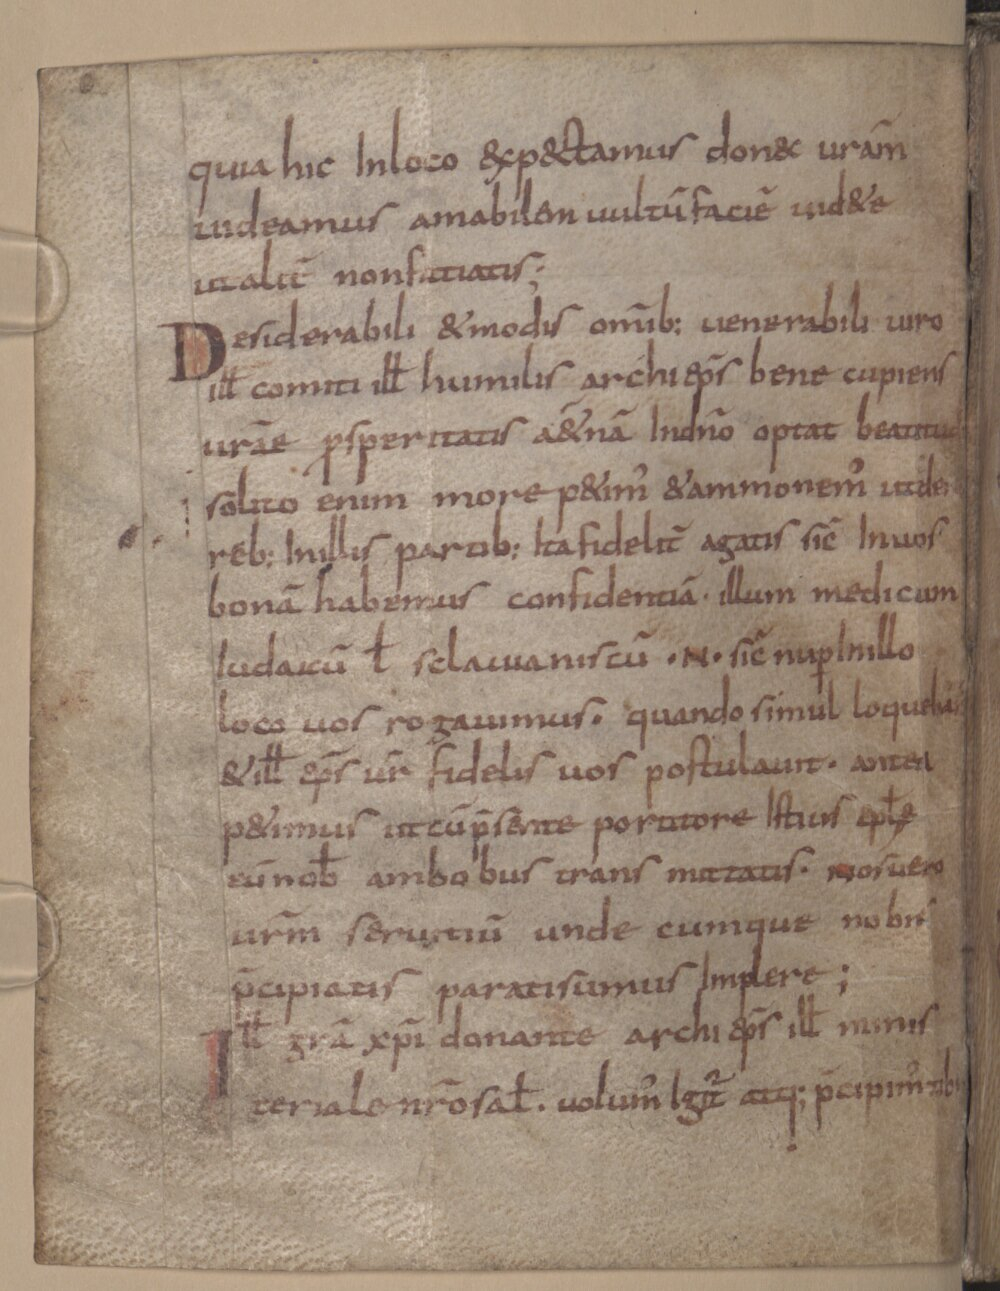 quia hic In loco &xp&ctamus don&c urãm
uideamus amabilem uultũ faciẽ uid&e
ut alit̃ non fatiatis;
Desiderabili &modis om̃ib: uenerabili uiro
ill̃ comiti ill̃ humilis archiep̃s bene cupiens
urãe ꝓsperitatis ã&nã In dñ̃o optat beatitud
solito enim more p&im̃ &ammonem̃ ut de
reb: In illis partib: Ita fidelit̃ agatis sic̃ In uos
bonã habemus confidentiã· illum medicum
Iudaicũ ł sclauaniscũ ·N· sic̃ nuꝑ In illo
loco uos rogauimus· quando simul loqueba
&ill̃ ep̃s ur̃ fidelis uos postulauit· antea
p&imus ut cũ p̃sente portitore Istius epl̃e
eũ nob̃ ambobus transmittatis· nos uero
urm̃ seruitiũ unde cumque nobis
p̃cipiatis parati sumus Implere;
Ill̃ grã xp̃i donante archiep̃s ill̃ minis
teriale nr̃o sal̃· uolum̃ Igit̃ atq; p̃cipim̃ tibi